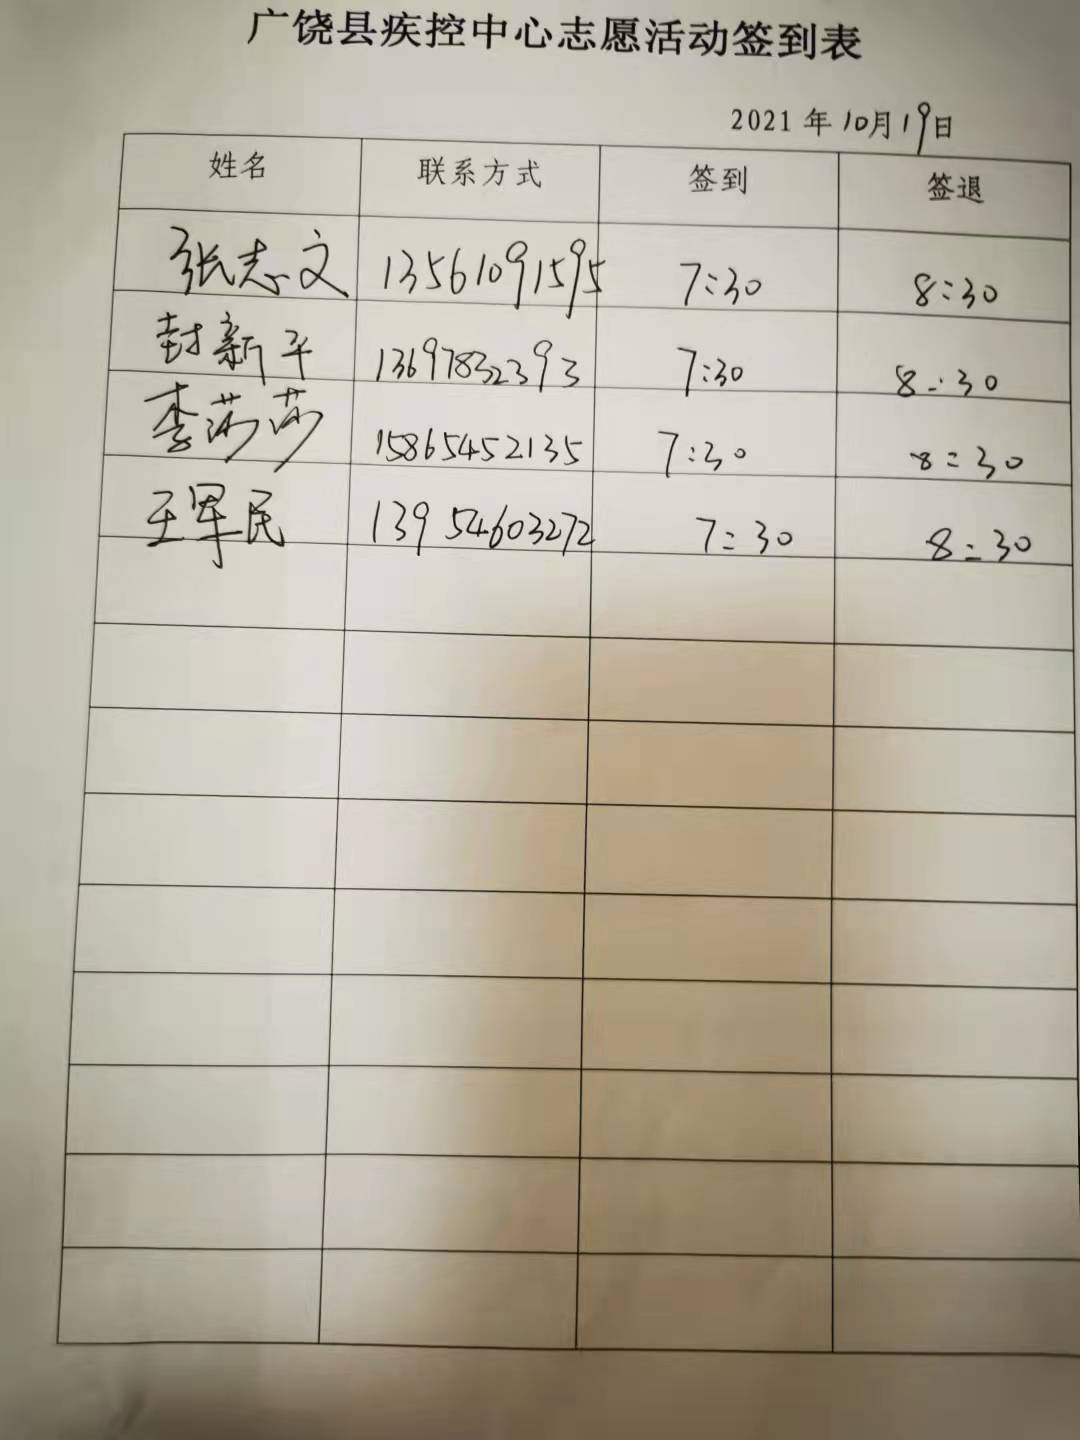 广饶县疾控中心志愿活动签到表
2021年10月19日
姓名 联系方式 签到 签退
张志文 13561091595 7:30 8:30
封新平 13697832393 7:30 8:30
李莎莎 15865452135 7:30 8:30
王军民 13954603272 7:30 8:30